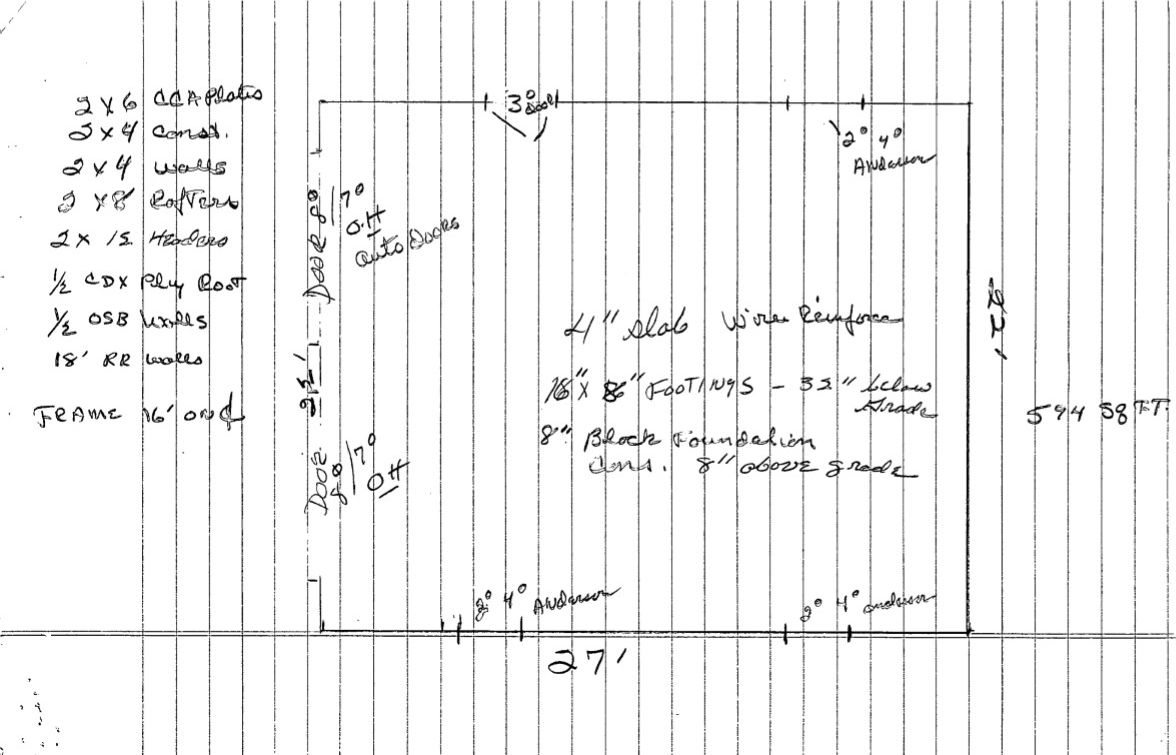 2 x 6 CCA Plates
2 x 4 Const.
2 x 4 walls
2 x 8 Rafters
2 x 12 Headers
1/2 CDX Ply Roof
1/2 OSB Walls
18' RR walls
FRAME 16' on ₵
3⁰ Door
2⁰ 4⁰
Anderson
DOOR 8⁰/7⁰
O.H
auto Doors
22'
DOOR
8⁰/7⁰
OH
4" slab Wire Reinforce
16" x 8" FOOTINGS - 32" below
Grade
8" Block Foundation
Cons. 8" above grade
22'
594 SQ FT.
2⁰ 4⁰ Anderson
2⁰ 4⁰ anderson
27'